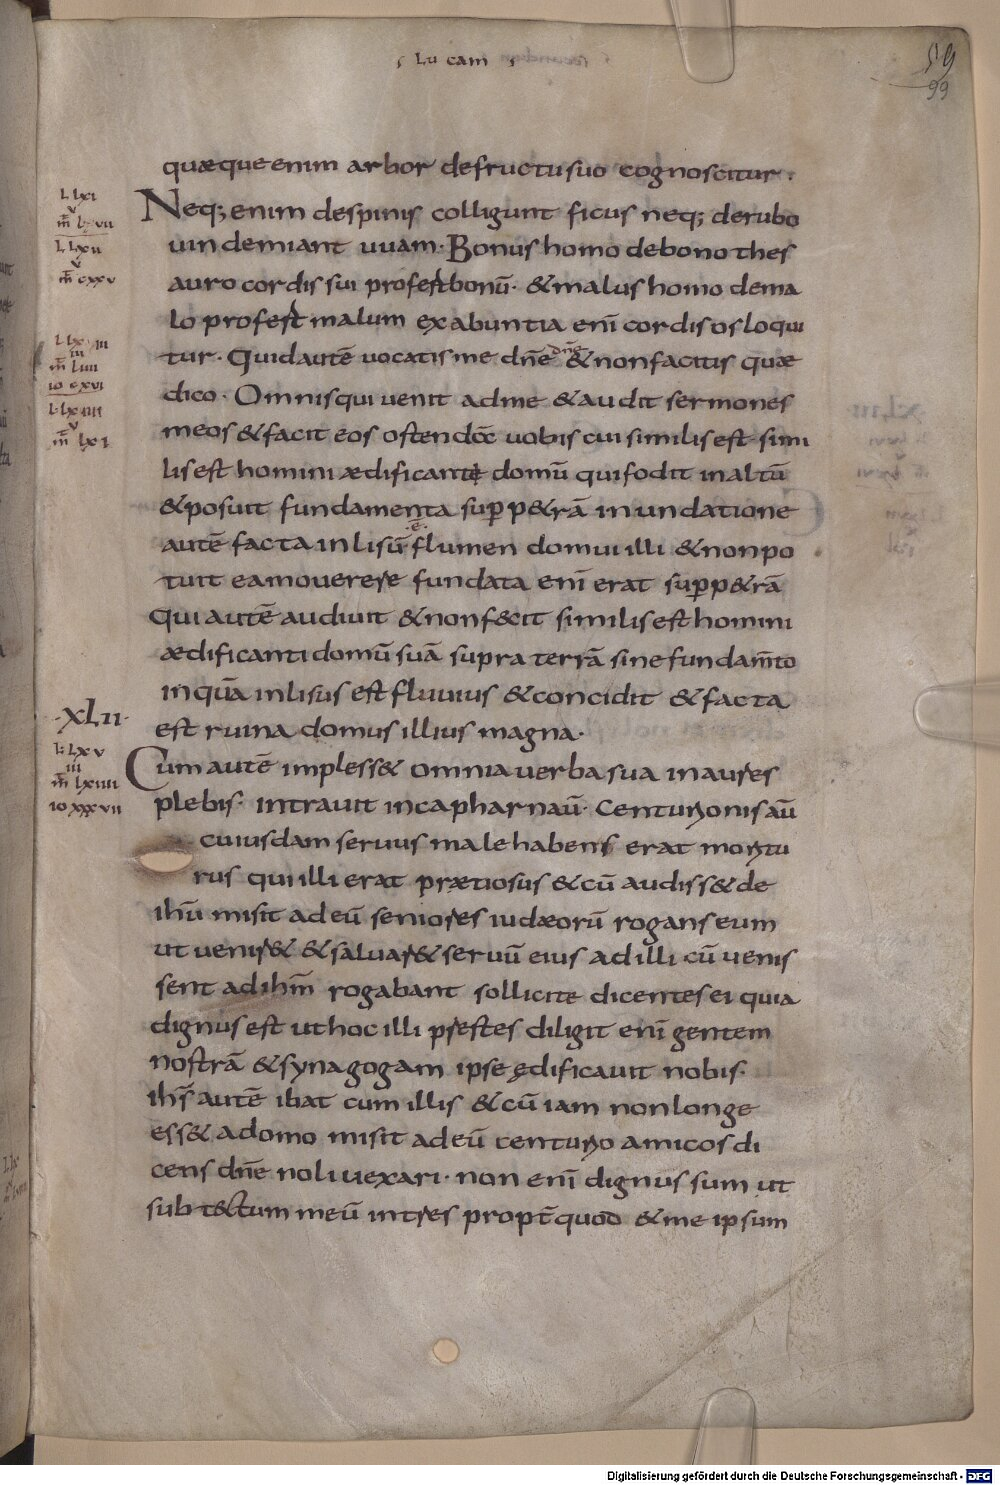 Lucam
59
99
quæque enim arbor defructu suo cognoscitur.
L Lxi
v
m̄ Lxvii
Neq; enim despinis colligunt ficus neq; derubo
L Lxii
v
m̄ cxxv
uindemiant uuam. Bonus homo debono thes
auro cordis sui profert bonū. & malus homo dema
lo profert malum ex abuntia enī cordis os loqui
tur. Quid autē uocatis me dn̄e dn̄e & non facitis quæ
iii
m̄ Liiii
io cxvi
dico. Omnis qui uenit ad me & audit sermones
L Lxiiii
v
m̄ Lxi
meos & facit eos ostendā uobis cui similis est. simi
lis est homini ædificanti domū qui fodit in altū
& posuit fundamenta sup p&rā inundatione
autē facta inlisū ē flumen domui illi & non po
tuit eam ouerere fundata enī erat sup p&rā
Qui autē audiuit & non fecit similis est homini
ædificanti domū suā supra terrā sine fundam̄to
in quā inlisus est fluuius & concidit & facta
·XLII·
est ruina domus illius magna.
L Lxv
iii
m̄ Lxiiii
io xxxvii
Cum autē impless& omnia uerba sua in aures
plebis. intrauit in capharnaū. Centurionis aū
cuiusdam seruus male habens erat moritu
rus qui illi erat prætiosus & cū audiss& de
ihū misit ad eū seniores iudæorū rogans eum
ut uenir& & saluar& seruū eius ad illi cū uenis
sent ad ihm̄ rogabant sollicite dicentes ei quia
dignus est ut hoc illi prestes diligit enī gentem
nostrā & synagogam ipse ędificauit nobis.
ihs̄ autē ibat cum illis & cū iam non longe
ess& a domo misit ad eū centurio amicos di
cens dn̄e noli uexari. non enī dignus sum ut
sub t&ctum meū intres propt̄ quod & me ipsum
Digitalisierung gefördert durch die Deutsche Forschungsgemeinschaft - DFG